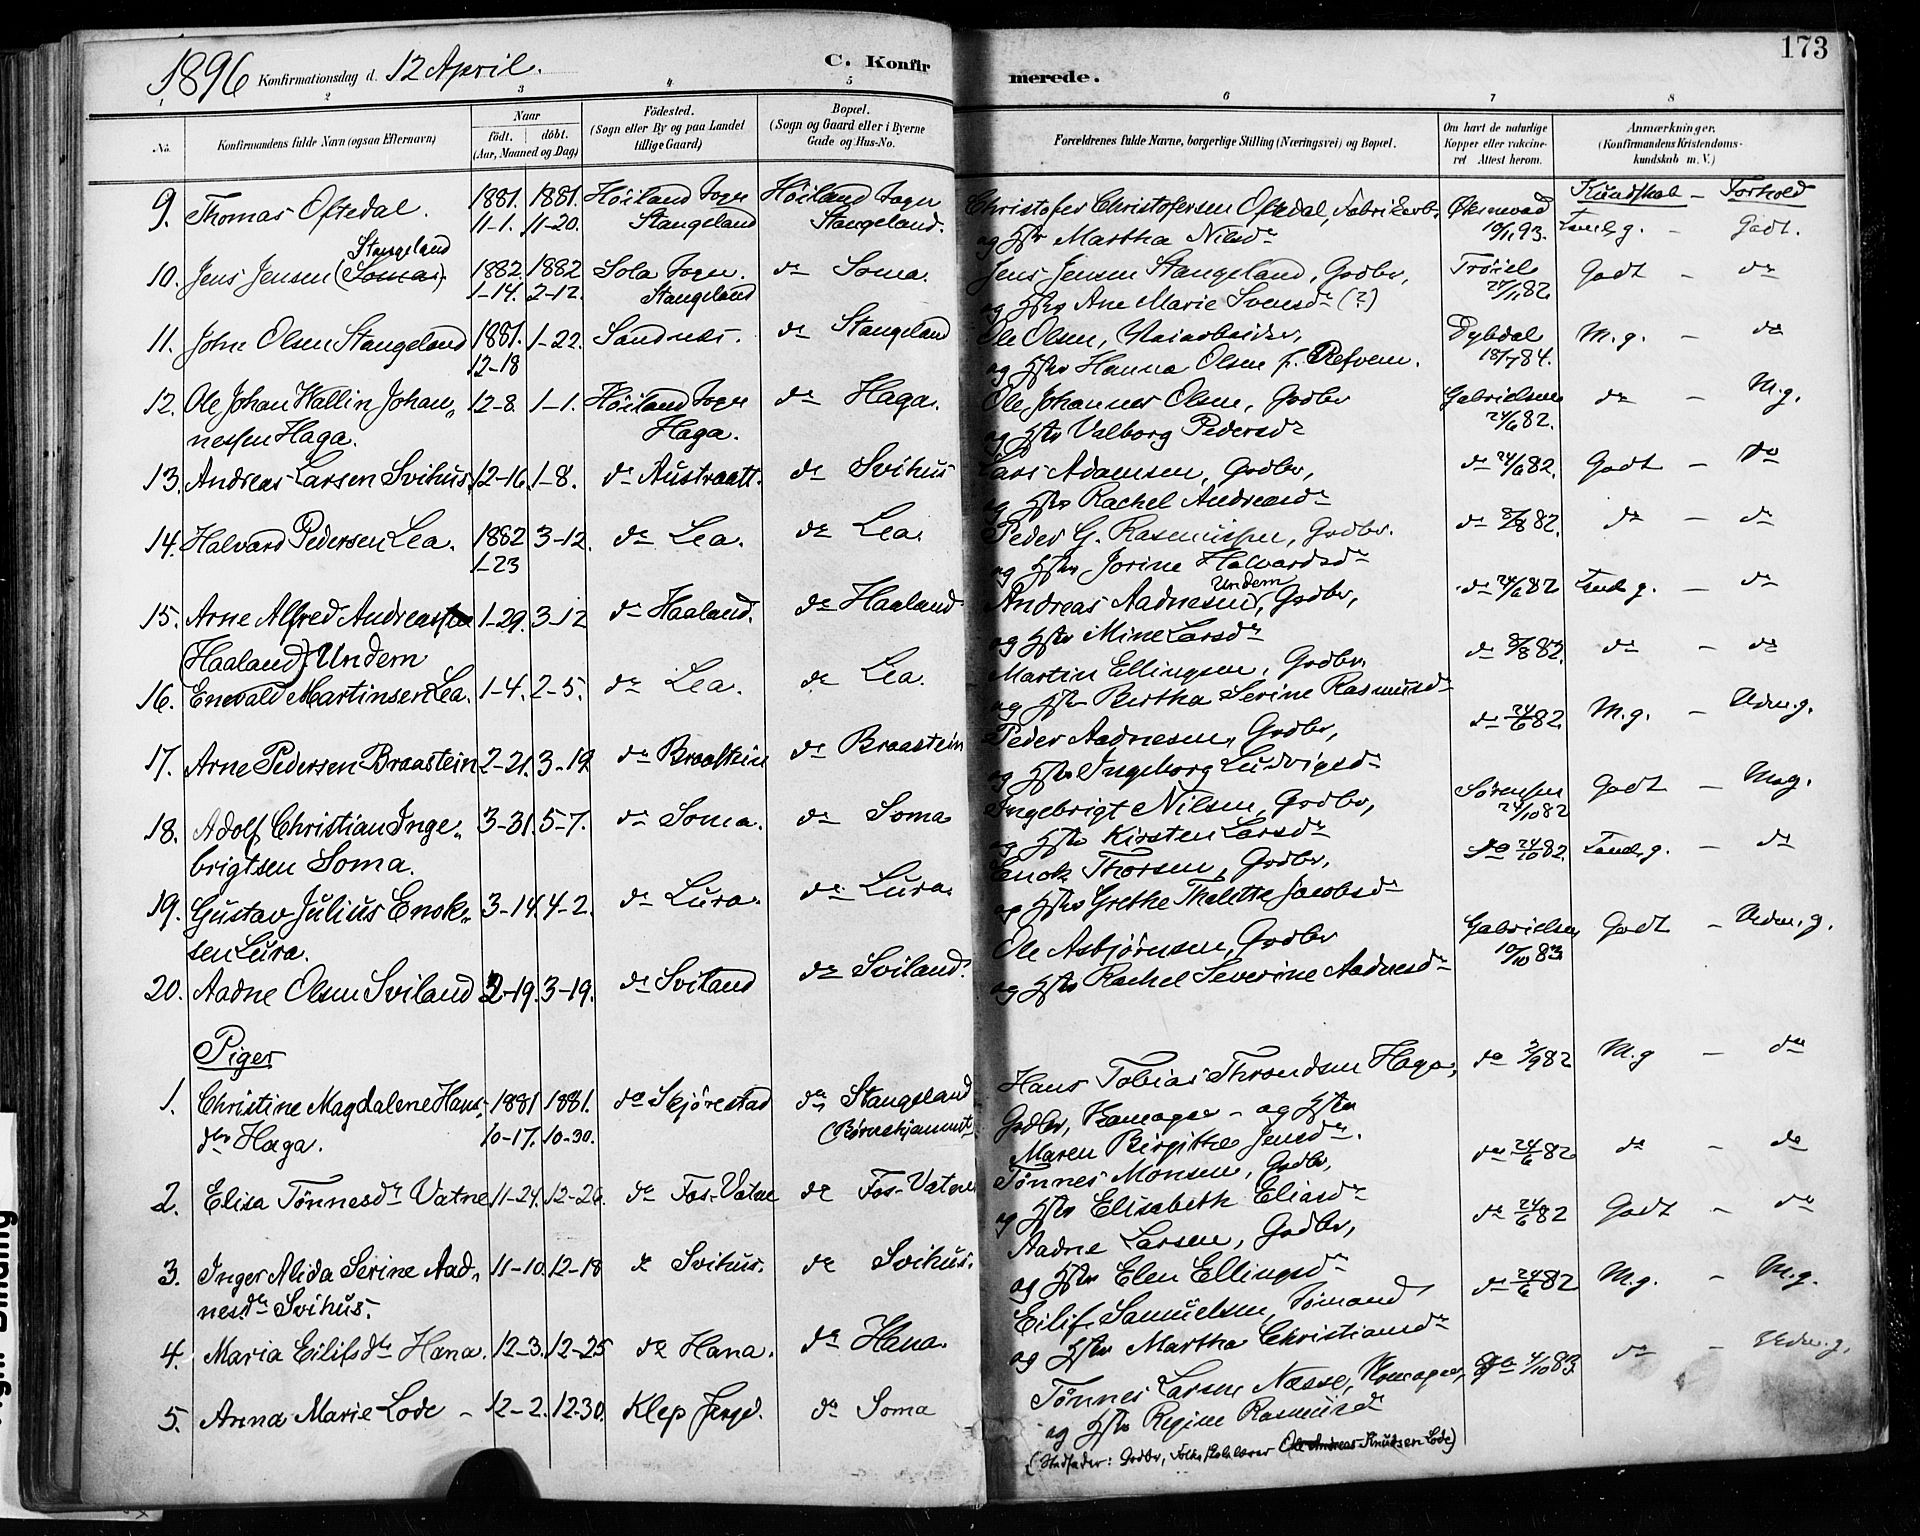 1896 Konfirmationsdag d. 12 April. C. Konfirmerede. 173
1 2 3 4 5 6 7 8
No. Konfirmandens fulde Navn (ogsaa Efternavn) Naar födt. döbt. (Aar, Maaned og Dag) Födested. (Sogn eller By og paa Landet tillige Gaard) Bopæl. (Sogn og Gaard eller i Byerne Gade og Hus-No. Forældrenes fulde Navne, borgerlige Stilling (Næringsvei) og Bopæl. Om havt de naturlige Kopper eller vaccineret Attest herom. Anmærkninger. (Konfirmandens Kristendomskundskab m. V.)
Kundskab – Forhold
9. Thomas Oftedal. 1881. 1881. Höiland Sogn Höiland Sogn Christofer Christofersen Oftedal, Fabrikarb. Øksnevad
11-1. 11-20. Stangeland Stangeland. og Hstr Martha Nilsdr 10/1 93. Tem. g. – Godt.
Stangeland
10. Jens Jensen (Soma). 1882. 1882 Sola Sogn. do Soma. Jens Jensen Stangeland, Grdbr, Tröiel Godt – do
1-14. 2-12. Stangeland og Hstr Ane Marie Svensdr (?) 27/11 82.
11. John Olsen Stangeland 1881. 1-22. Sandnes. do Stangeland Ole Olsen, Veiarbeider, Dybdal M.g. – do
12-18 og Hstr Hanna Olsen f. Refvem. 18/7 84.
12. Ole Johan Wallin Johan- 12-8. 1-1. Höiland Sogn do Haga. Ole Johannes Olsen, Grdbr Gabrielsen do – M.g.
nessen Haga. Haga. og Hstr Valborg Pedersdr 24/6 82.
13. Andreas Larsen Svihus. 12-16. 1-8. do Austraatt. do Svihus Lars Adamsen, Grdbr, do 24/6 82. Godt – do
og Hstr Rachel Andreasdr
14. Halvard Pedersen Lea. 1882 3-12. do Lea. do Lea. Peder G. Rasmussen, Grdbr. do 8/8 82. do – do
1-23 og Hstr Jorine Halvardsdr
Undem
15. Arne Alfred Andreassen 1-29. 3-12 do Haaland. do Haaland Andreas Aadnesen, Grdbr, do 24/6 82 Tem. g. – do
(Haaland) Undem og Hstr Mine Larsdr
16. Enevald Martinsen Lea. 1-4. 2-5. do Lea. do Lea. Martin Ellingsen, Grdbr. do 8/8 82. do – do
og Hstr Bertha Serine Rasmusdr
17. Arne Pedersen Braastein 2-21. 3-19 do Braastein do Braastein Peder Aadnesen, Grdbr, do 24/6 82. M.g. – Udm. g.
og Hstr Ingeborg Ludvigsdr
18. Adolf Christian Inge- 3-31. 5-7. do Soma. do Soma Ingebrigt Nilsen, Grdbr, Sörensen Godt – Meg.
brigtsen Soma. og Hstr Kirsten Larsdr 24/10 82
19. Gustav Julius Enok- 3-14. 4-2. do Lura. do Lura. Enok Thorsen, Grdbr, do 24/10 82. Tem. g. – do
sen Lura. og Hstr Grethe Thalette Jacobsdr
20. Aadne Olsen Sviland 2-19. 3-19. do Sviland do Sviland. Ole Asbjörnsen, Grdbr Gabrielsen Godt – Udm. g.
og Hstr Rachel Severine Aadnesdr 10/10 83
Piger
1. Christine Magdalene Hans- 1881 1881. do Skjörestad do Stangeland Hans Tobias Throndsen Haga, do 2/9 82 M.g – do
dtr Haga. 10-17. 10-30. (Börnehjemmet Grdbr, Kramager – og Hstr
Maren Birgitte Jensdr.
2. Elisa Tönnesdr Vatne 11-24. 12-26. do Fos-Vatne do Fos-Vatne Tönnes Monsen, Grdbr, do 24/6 82 do – do
og Hstr Elisabeth Eliasdr
3. Inger Alida Serine Aad- 11-10. 12-18 do Svihus. do Svihus. Aadne Larsen, Grdbr, do 24/6 82 Godt – do
nesdr Svihus. og Hstr Elen Ellingsdr
4. Maria Eilifsdr Hana. 12-3. 12-25 do Hana. do Hana. Eilif Samuelsen, Sömand do 24/6 82 M.g. – M.g.
og Hstr Martha Christiansdr
5. Anna Marie Lode – 12-2. 12-30. Klep Prgd. do Soma Tönnes Larsen Næsse, 4/10 83. do – Udm. g.
og Hstr Regine Rasmusdr
(Stedfader: Grdbr, Ole Andreas Knudsen Lode)